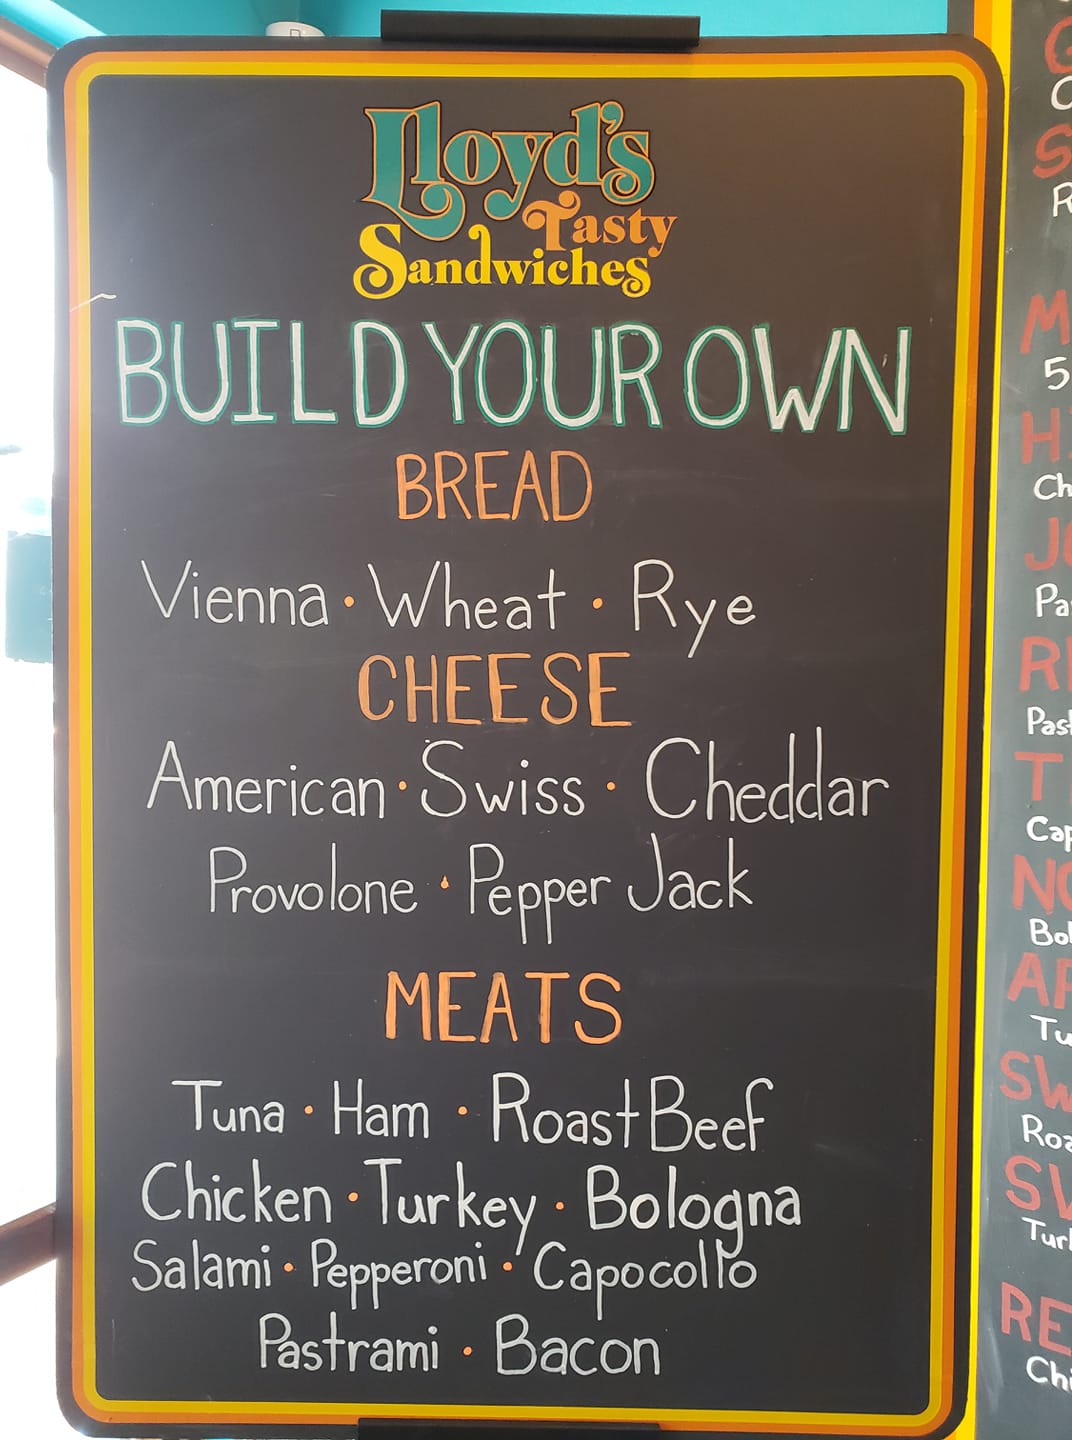 Lloyd's
Tasty
Sandwiches
BUILD YOUR OWN
BREAD
Vienna • Wheat • Rye
CHEESE
American • Swiss • Cheddar
Provolone • Pepper Jack
MEATS
Tuna • Ham • Roast Beef
Chicken • Turkey • Bologna
Salami • Pepperoni • Capocollo
Pastrami • Bacon